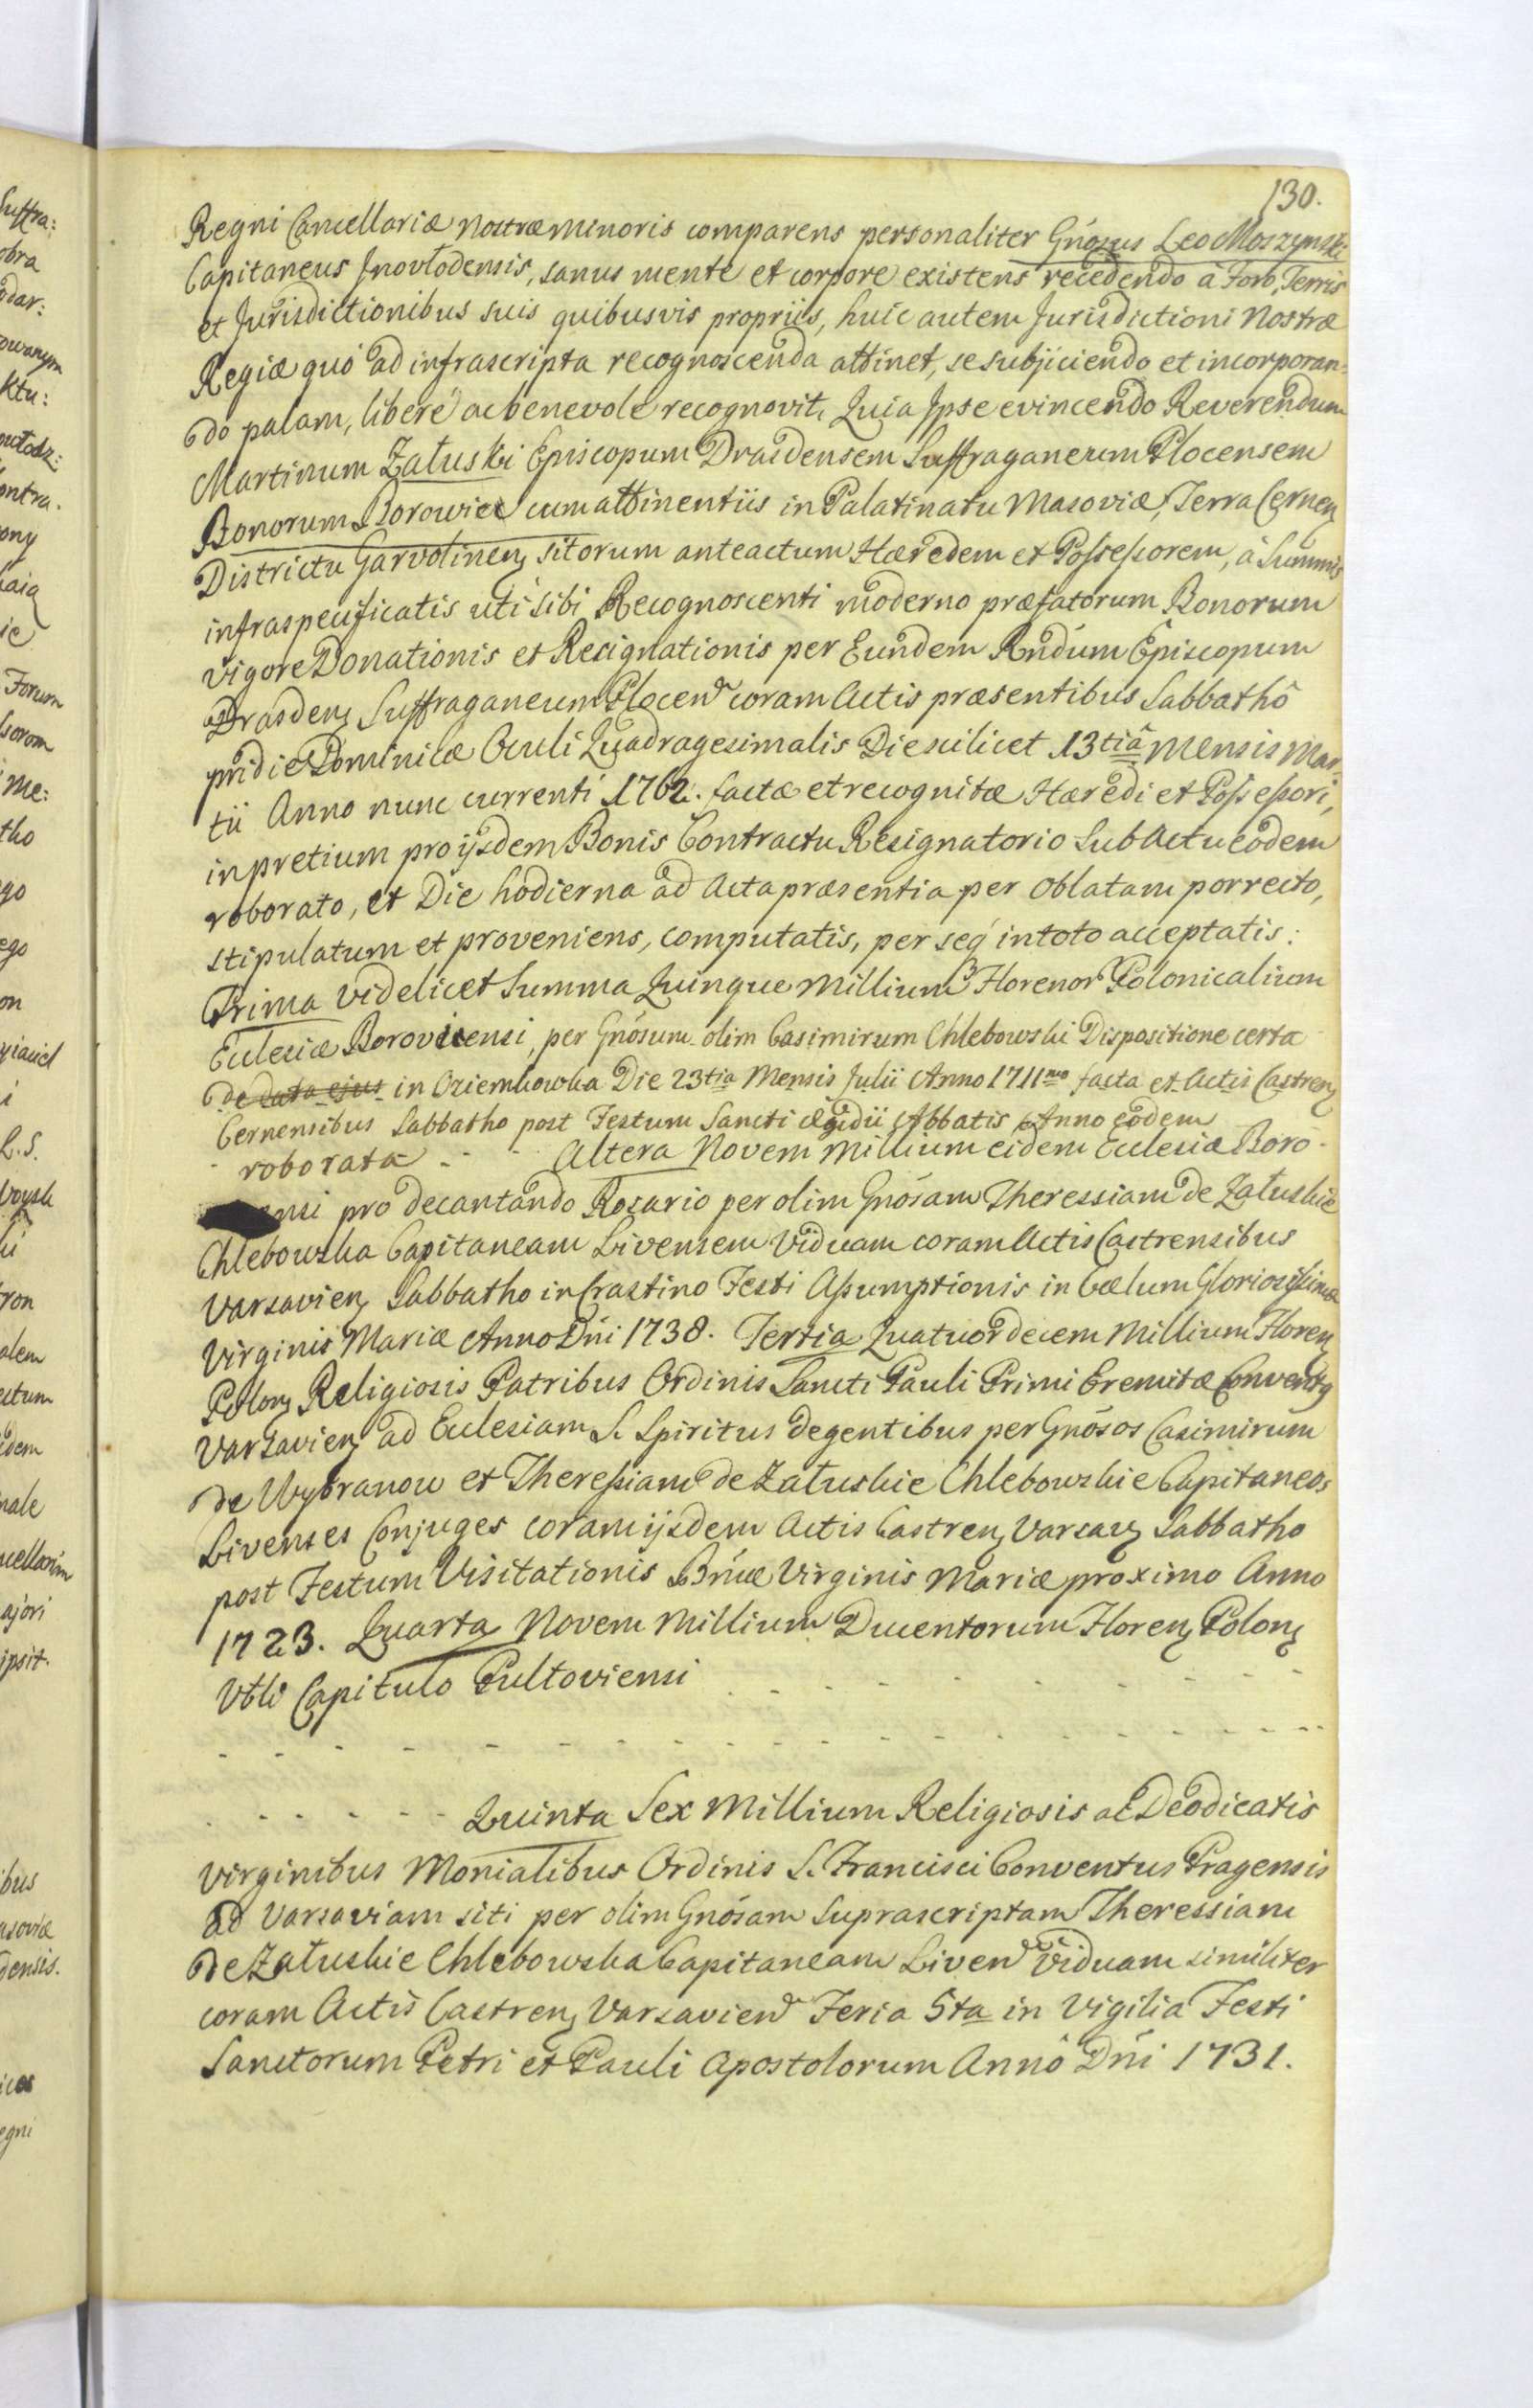 130.
Regni Cancellariæ Nostræ minoris comparens personaliter Gńosus Leo Moszynski
Capitaneus Jnovłodensis, sanus mente et corpore existens recedendo â Foro, Terris
et Jurisdictionibus suis quibusvis propriis, huic autem Jurisdictioni Nostræ
Regiæ quó ad infrascripta recognoscenda attinet, se subjiciendo et incorporan-
do palam, libere ac benevole recognovit, Quia Jpse evincendo Reverendum
Martinum Załuski Episcopum Drasdensem Suffraganeum Plocensem
Bonorum Borowice cum attinentiis in Palatinatu Masoviæ, Terra Cernen
Districtu Garvolinen sitorum anteactum Hæredem et Possessorem, â Summis
infraspecificatis uti sibi Recognoscenti moderno præfatorum Bonorum
vigore Donationis et Resignationis per Eundem Rńdum Episcopum
Drasden Suffraganeum Plocen coram Actis præsentibus Sabbathô
pridie Dominicæ Oculi Quadragesimalis Die scilicet 13tiâ Mensis Mar-
tii Anno nunc currenti 1762. factæ et recognitæ Hæredi et Possessori,
in pretium pro ijsdem Bonis Contractu Resignatorio sub Actu eodem
roborato, et Die hodierna ad Acta præsentia per Oblatam porrecto,
stipulatum et proveniens, computatis, per seq́ in toto acceptatis:
Prima videlicet Summa Quinque Millium Florenor Polonicalium
Eclesiæ Borovicensi, per Gnósum olim Casimirum Chlebowski Dispositione certa
de data ejus in Oziemkowka Die 23tia Mensis Julii Anno 1711mo facta et Actis Castren
Cernensibus Sabbatho post Festum Sancti Ægidii Abbatis Anno eodem
roborata - - - Altera Novem Millium eidem Eclesiæ Boro-
ensi pro decantando Rosario per olim Gnósam Theressiam de Załuskie
Chlebowska Capitaneam Livensem Viduam coram Actis Castrensibus
Varsavien Sabbatho in Crastino Festi Assumptionis in Cælum Gloriosissimæ
Virginis Mariæ Anno Dńi 1738. Tertia Quatuordecem Millium Floren
Polon Religiosis Patribus Ordinis Sancti Pauli Primi Eremitæ Conventg
Varsavien ad Eclesiam S. Spiritus degentibus per Gnósos Casimirum
de Wybranow et Theressiam de Załuskie Chlebowskie Capitaneos
Livenses Conjuges coram ijsdem Actis Castren Varsav Sabbatho
post Festum Visitationis Bńae Virginis Mariæ proximo Anno
1723. Quarta Novem Millium Ducentorum Floren Polon
Vbli Capitulo Pultoviensi - - - - - - - - -
- - - - - - - - - - - - - - - - - -
- - - - - Quinta Sex Millium Religiosis ac Deodicatis
Virginibus Monialibus Ordinis S. Francisci Conventus Pragensis
ad Varsaviam siti per olim Gnósam Suprascriptam Theressiam
de Załuskie Chlebowska Capitaneam Liven Viduam similiter
coram Actis Castren Varsavien Feria 5ta in Vigilia Festi
Sanctorum Petri et Pauli Apostolorum Annô Dńi 1731.